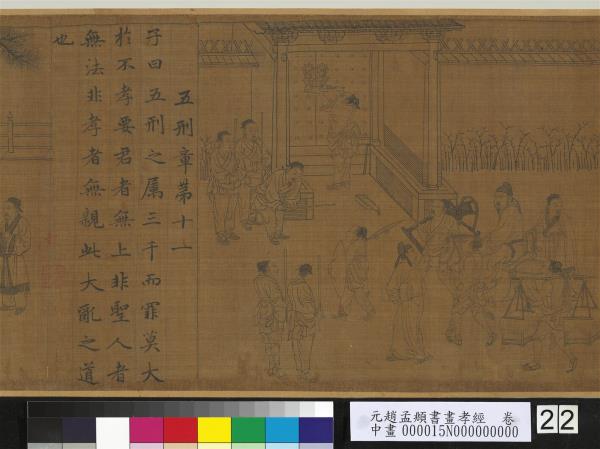 五刑章第十一
子曰五刑之属三千而罪莫大
於不孝要君者無上非聖人者
無法非孝者無親此大亂之道
也
元趙孟頫書畫孝經 卷
中畫000015N000000000
22